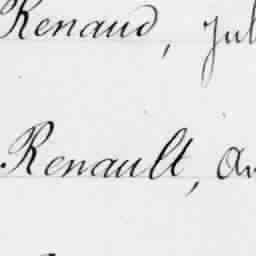 Renaud, Jul
Renault, An